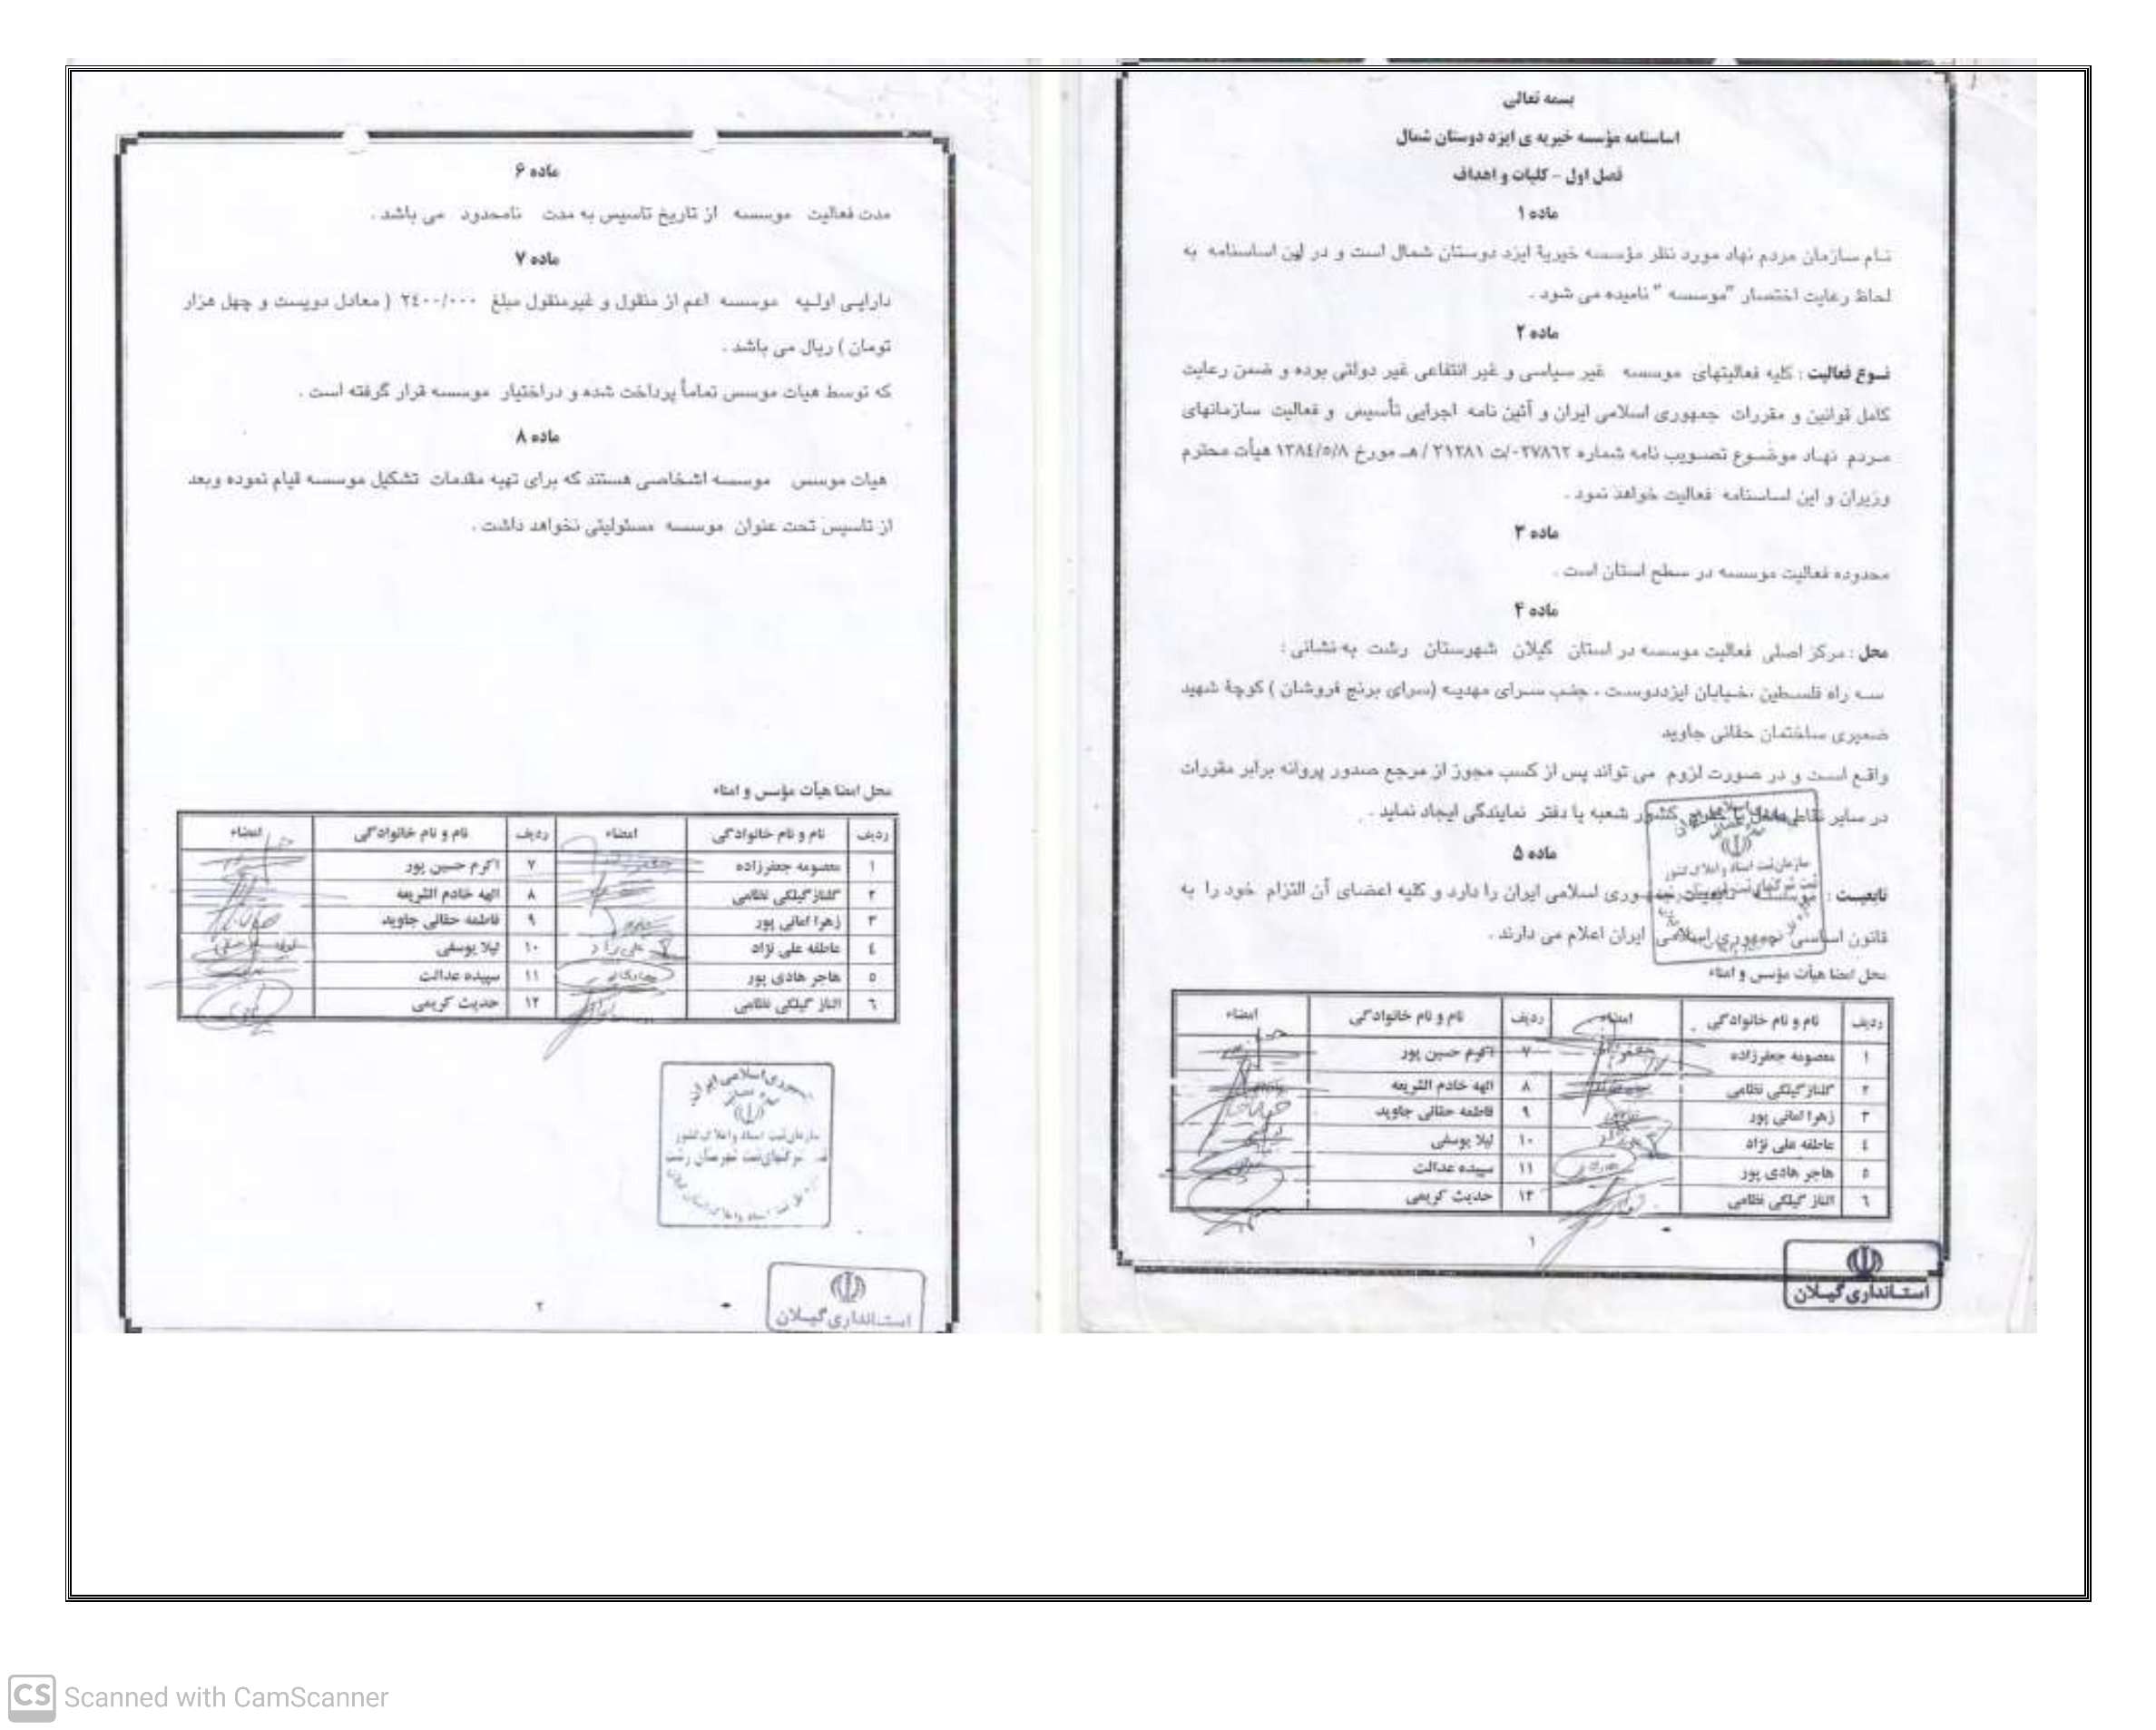 بسمه تعالی
اساسنامه مؤسسه خیریه ی ایزد دوستان شمال
فصل اول - کلیات و اهداف
ماده ۱
نام سازمان مردم نهاد مورد نظر مؤسسه خیریهٔ ایزد دوستان شمال است و در این اساسنامه به
لحاظ رعایت اختصار "موسسه" نامیده می شود .
ماده ۲
نوع فعالیت : کلیه فعالیتهای موسسه غیر سیاسی و غیر انتفاعی غیر دولتی بوده و ضمن رعایت
کامل قوانین و مقررات جمهوری اسلامی ایران و آئین نامه اجرایی تأسیس و فعالیت سازمانهای
مردم نهاد موضوع تصویب نامه شماره ۰۲۷۸۶۲/ت ۳۱۲۸۱ / هـ مورخ ۱۳۸٤/٥/۸ هیأت محترم
وزیران و این اساسنامه فعالیت خواهد نمود .
ماده ۳
محدوده فعالیت موسسه در سطح استان است .
ماده ۴
محل : مرکز اصلی فعالیت موسسه در استان گیلان شهرستان رشت به نشانی :
سه راه فلسطین ،خیابان ایزددوست ، جنب سرای مهدیه (سرای برنج فروشان ) کوچهٔ شهید
ضمیری ساختمان حقانی جاوید
واقع است و در صورت لزوم می تواند پس از کسب مجوز از مرجع صدور پروانه برابر مقررات
در سایر نقاط داخل یا خارج کشور شعبه یا دفتر نمایندگی ایجاد نماید .
ماده ۵
تابعیت : موسسه تابعیت جمهوری اسلامی ایران را دارد و کلیه اعضای آن التزام خود را به
قانون اساسی جمهوری اسلامی ایران اعلام می دارند .
سازمان ثبت اسناد و املاک کشور
محل امضا هیأت مؤسس و امناء
ردیف نام و نام خانوادگی امضاء ردیف نام و نام خانوادگی امضاء
۱ معصومه جعفرزاده ۷ اکرم حسین پور
۲ گلناز گیلکی نظامی ۸ الهه خادم الشریعه
۳ زهرا امانی پور ۹ فاطمه حقانی جاوید
٤ عاطفه علی نژاد ۱۰ لیلا یوسفی
٥ هاجر هادی پور ۱۱ سپیده عدالت
٦ الناز گیلکی نظامی ۱۲ حدیث کریمی
۱
استانداری گیلان
ماده ۶
مدت فعالیت موسسه از تاریخ تاسیس به مدت نامحدود می باشد .
ماده ۷
دارایی اولیه موسسه اعم از منقول و غیرمنقول مبلغ ۲٤۰۰/۰۰۰ ( معادل دویست و چهل هزار
تومان ) ریال می باشد .
که توسط هیات موسس تماماً پرداخت شده و دراختیار موسسه قرار گرفته است .
ماده ۸
هیات موسس موسسه اشخاصی هستند که برای تهیه مقدمات تشکیل موسسه قیام نموده وبعد
از تاسیس تحت عنوان موسسه مسئولیتی نخواهد داشت .
محل امضا هیأت مؤسس و امناء
ردیف نام و نام خانوادگی امضاء ردیف نام و نام خانوادگی امضاء
۱ معصومه جعفرزاده ۷ اکرم حسین پور
۲ گلناز گیلکی نظامی ۸ الهه خادم الشریعه
۳ زهرا امانی پور ۹ فاطمه حقانی جاوید
٤ عاطفه علی نژاد ۱۰ لیلا یوسفی
٥ هاجر هادی پور ۱۱ سپیده عدالت
٦ الناز گیلکی نظامی ۱۲ حدیث کریمی
جمهوری اسلامی ایران
سازمان ثبت اسناد و املاک کشور
شرکتهای ثبت شهرستان رشت
۲
استانداری گیلان
CS Scanned with CamScanner